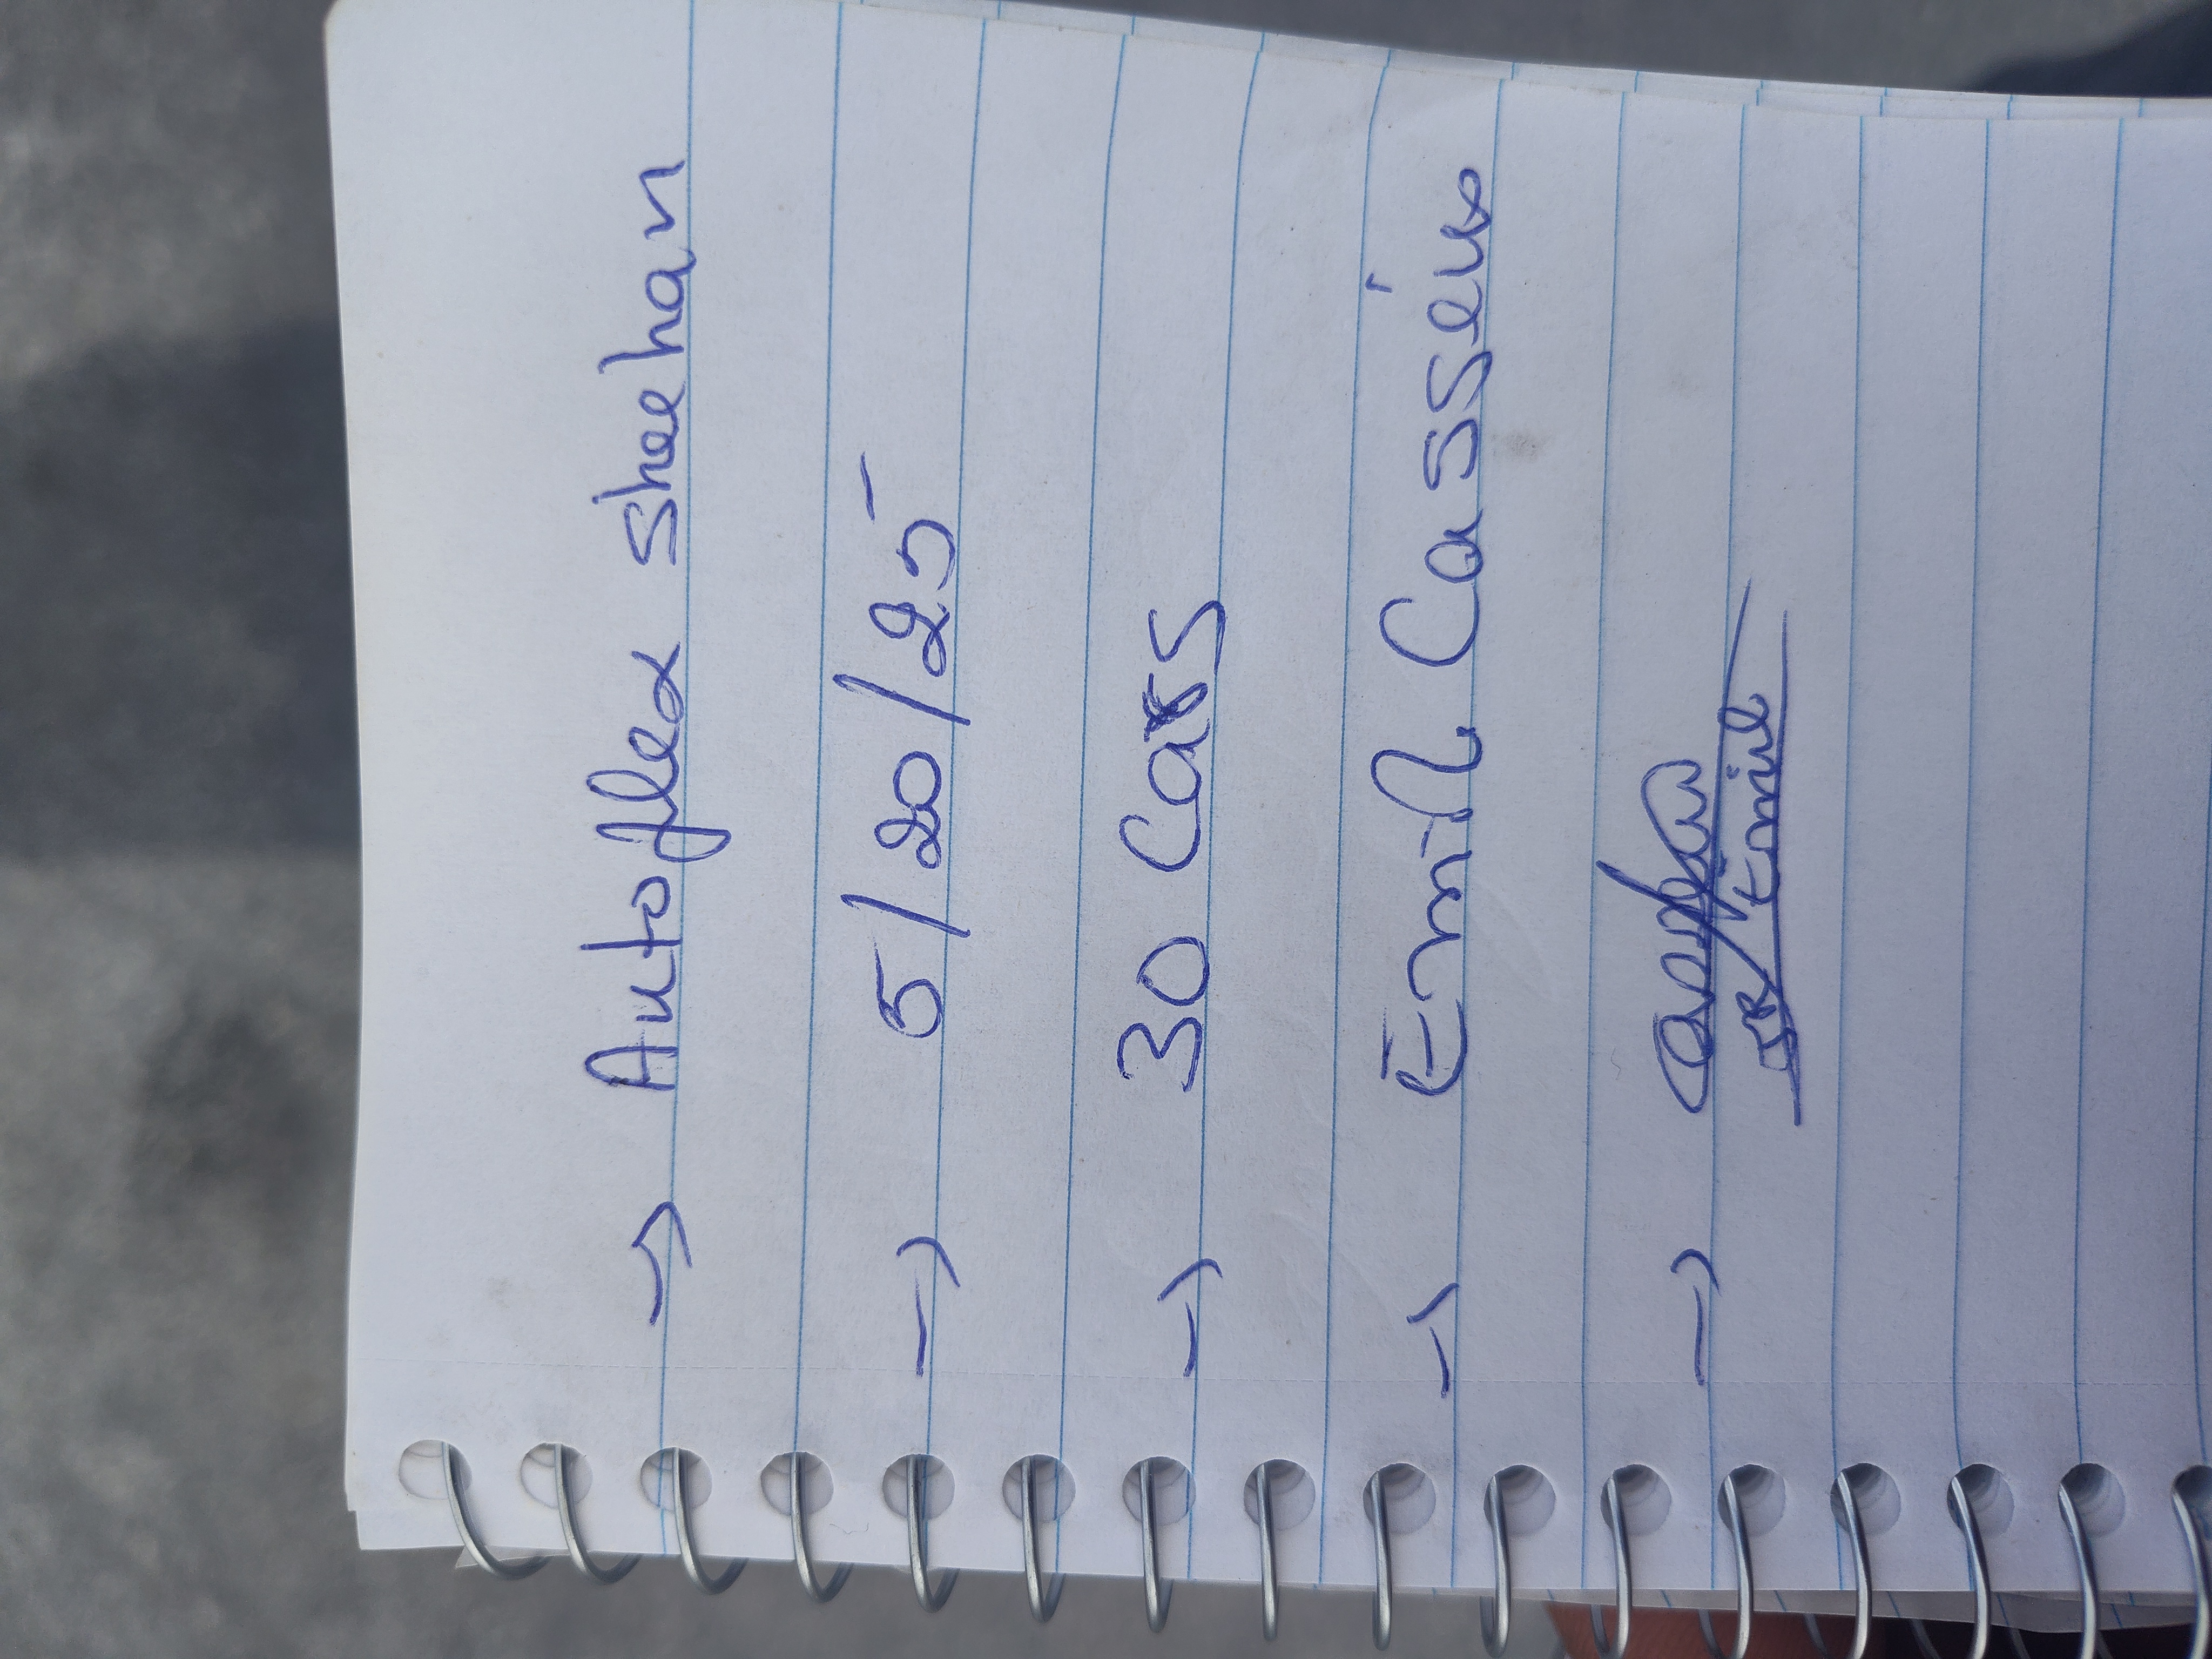 → Autoflex Sheehan
→ 5/20/25
→ 30 Cars
→ Emil Cassëus
→
Emile